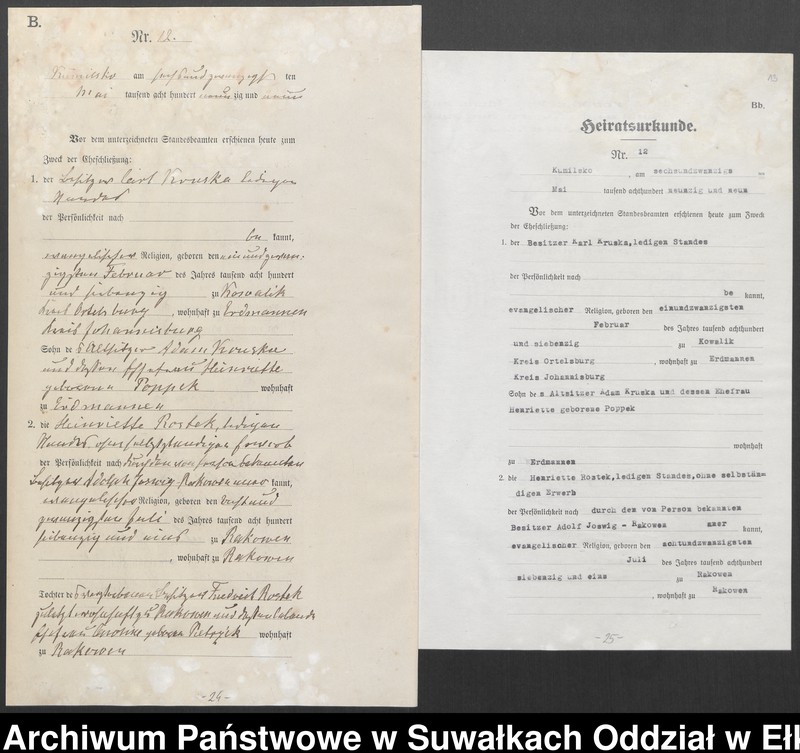 B.
Nr. 12.
Kumilsko am sechsundzwanzigsten
Mai tausend acht hundert neun zig und neun
Vor dem unterzeichneten Standesbeamten erschienen heute zum
Zweck der Eheschließung:
1. der Besitzer Carl Kruska ledigen
Standes
der Persönlichkeit nach
be kannt,
evangelischer Religion, geboren den einundzwan-
zigsten Februar des Jahres tausend acht hundert
und siebenzig zu Kowalik
Kreis Ortelsburg, wohnhaft zu Erdmannen
Kreis Johannisburg
Sohn des Altsitzer Adam Kruska
und dessen Ehefrau Henriette
geborene Poppek wohnhaft
zu Erdmannen
2. die Henriette Rostek, ledigen
Standes ohne selbstständigen Erwerb
der Persönlichkeit nach durch den von Person bekannten
Besitzer Adolph Joswig-Rakowen kannt,
evangelischer Religion, geboren den achtund
zwanzigsten Juli des Jahres tausend acht hundert
siebenzig und eins zu Rakowen
, wohnhaft zu Rakowen
Tochter des verstorbenen Besitzers Friedrich Rostek
zuletzt wohnhaft zu Rakowen und dessen lebende
Ehefrau geborene Pietrzyk wohnhaft
zu Rakowen
- 24 -
Bb.
Heiratsurkunde.
Nr. 12
Kumilsko, am sechsundzwanzigs ten
Mai tausend achthundert neunzig und neun
Vor dem unterzeichneten Standesbeamten erschienen heute zum Zweck
der Eheschließung:
1. der Besitzer Karl Kruska,ledigen Standes
der Persönlichkeit nach
be kannt,
evangelischer Religion, geboren den einundzwanzigsten
Februar des Jahres tausend achthundert
und siebenzig zu Kowalik
Kreis Ortelsburg, wohnhaft zu Erdmannen
Kreis Johannisburg
Sohn des Altsitzer Adam Kruska und dessen Ehefrau
Henriette geborene Poppek
wohnhaft
zu Erdmannen
2. die Henriette Rostek,ledigen Standes,ohne selbstän-
digen Erwerb
der Persönlichkeit nach durch den von Person bekannten
Besitzer Adolf Joswig - Rakowen kannt,
evangelischer Religion, geboren den achtundzwanzigsten
Juli des Jahres tausend achthundert
siebenzig und eins zu Rakowen
, wohnhaft zu Rakowen
- 25 -
Archiwum Państwowe w Suwałkach Oddział w Eł